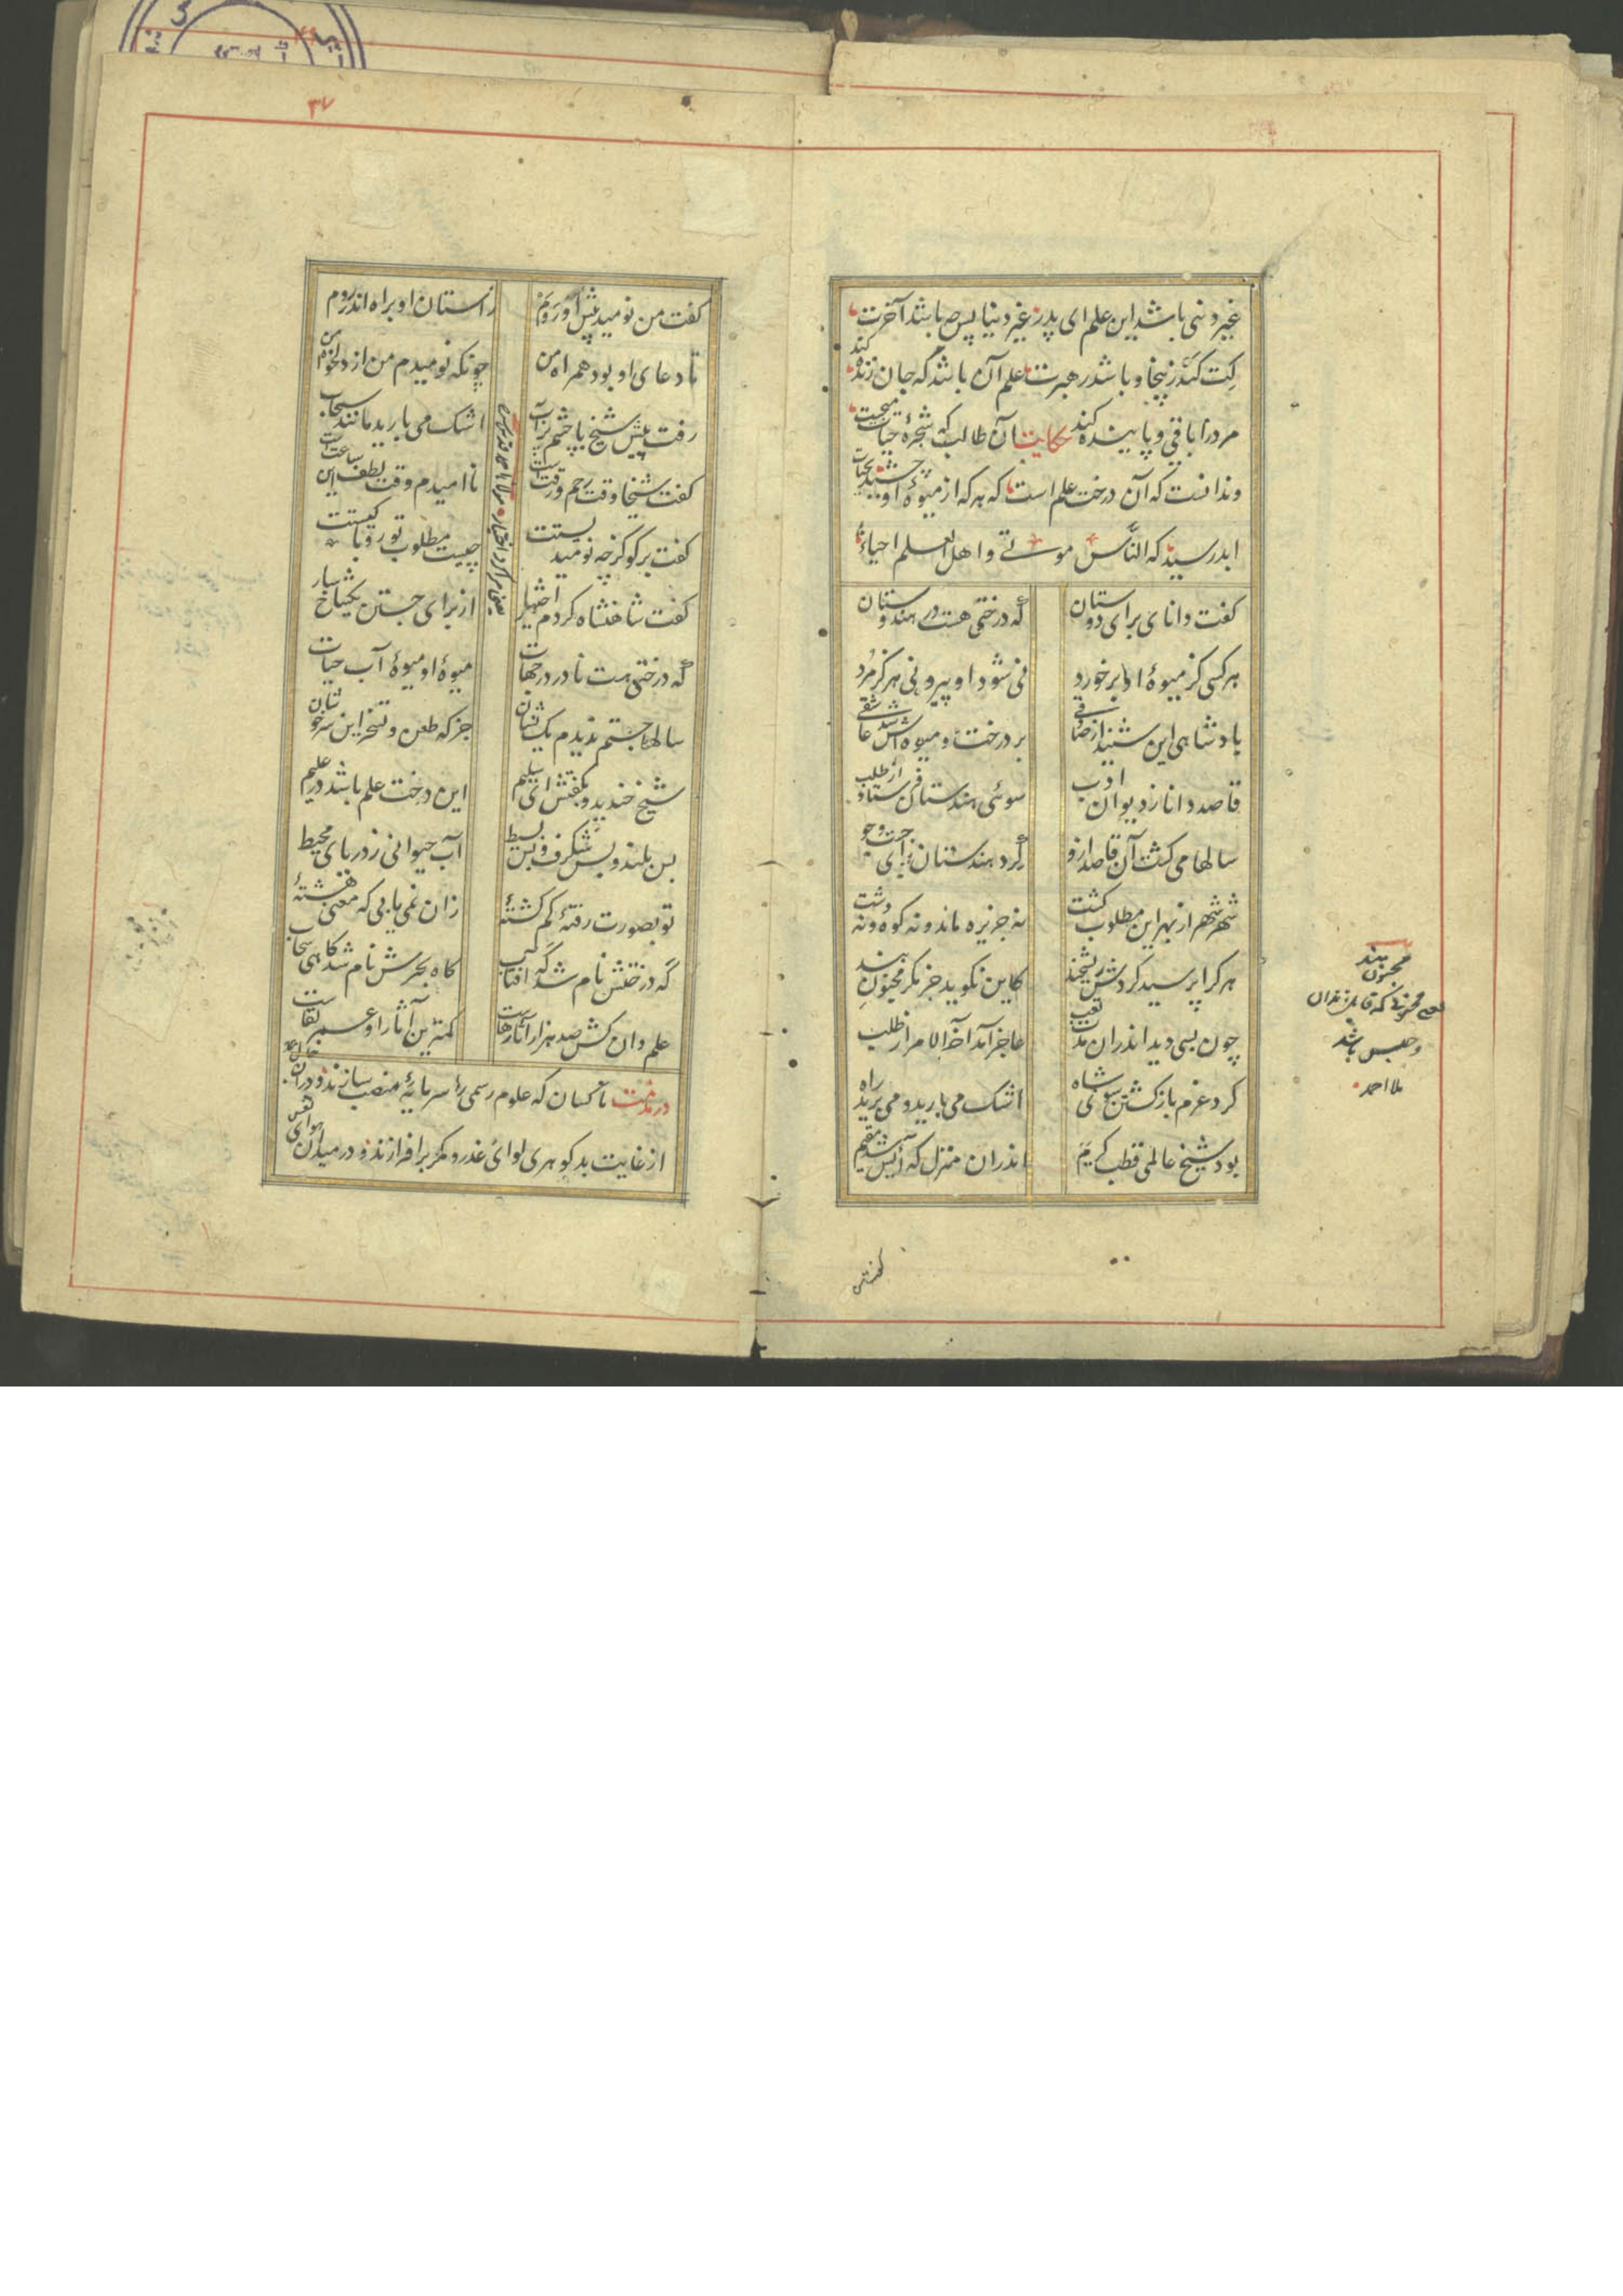 غیر دنی باشد این علم ای پدر غیر دنیا پس چه باشد آخرت
کت کند زینجا و باشد رهبرت علم آن باشد که جان زنده کند
مرد را باقی و پاینده کند حکایت آن طالب که شجرهٔ حیات میجست
وندانست که آن درخت علم است که هر که از میوهٔ او چشید بحیات
ابد رسید که الناس موتی و اهل العلم احیاء
گفت دانای برای دوستان که درختی هست در هندوستان
هر کسی کز میوهٔ او بر خورد نی شود او پیر و نی هرگز مرد
پادشاهی این شنید از صادقی بر درخت و میوه اش شد عاشقی
قاصد دانا ز دیوان ادب سوی هندستان فرستاد از طلب
سالها می گشت آن قاصد ازو گرد هندستان برای جست و جو
شهر شهر از بهر این مطلوب گشت نه جزیره ماند و نه کوه و نه دشت
هر کرا پرسید کردش ریشخند کاین نگوید جز مگر مجنون بند
چون بسی دید اندران مدت تعب عاجز آمد آخر الامر از طلب
کرد عزم بازگشتن سوی شاه اشک می بارید و می برید راه
بود شیخ عالمی قطب کریم اندران منزل که آیس شد مقیم
مجنون بند
و حبس باشد
ملا احمد
گفتش
۳۷
گفت من نومید پیش او روم ز آستان او براه اندر روم
تا دعای او بود همراه من چونکه نومیدم من از دلخواه من
رفت پیش شیخ با چشم پر آب اشک می بارید مانند سحاب
گفت شیخا وقت رحم و رقت است ناامیدم وقت لطف این ساعت است
گفت بر گو کز چه نومیدیستت چیست مطلوب تو رو با کیستت
گفت شاهنشاه کردم اختیار از برای جستن یک شاخسار
که درختی هست نادر در جهات میوهٔ او میوهٔ آب حیات
سالها جستم ندیدم یک نشان جز که طعن و تسخر این سرخوشان
شیخ خندید و بگفتش ای سلیم این درخت علم باشد در علیم
بس بلند و بس شگرف و بس بسیط آب حیوانی ز دریای محیط
تو بصورت رفتهٔ گم گشتهٔ زان نمی یابی که معنی هشتهٔ
گه درختش نام شد گه آفتاب گاه بحرش نام شد گاهی سحاب
علم دان کش صد هزار آثار هاست کمترین آثار او عمر بقاست
در مذمت ناکسان که علوم رسمی را سرمایهٔ منصب سازند و دران
از غایت بد گوهری لوای غدر و مکر بر افرازند و در میدان هوای نفس